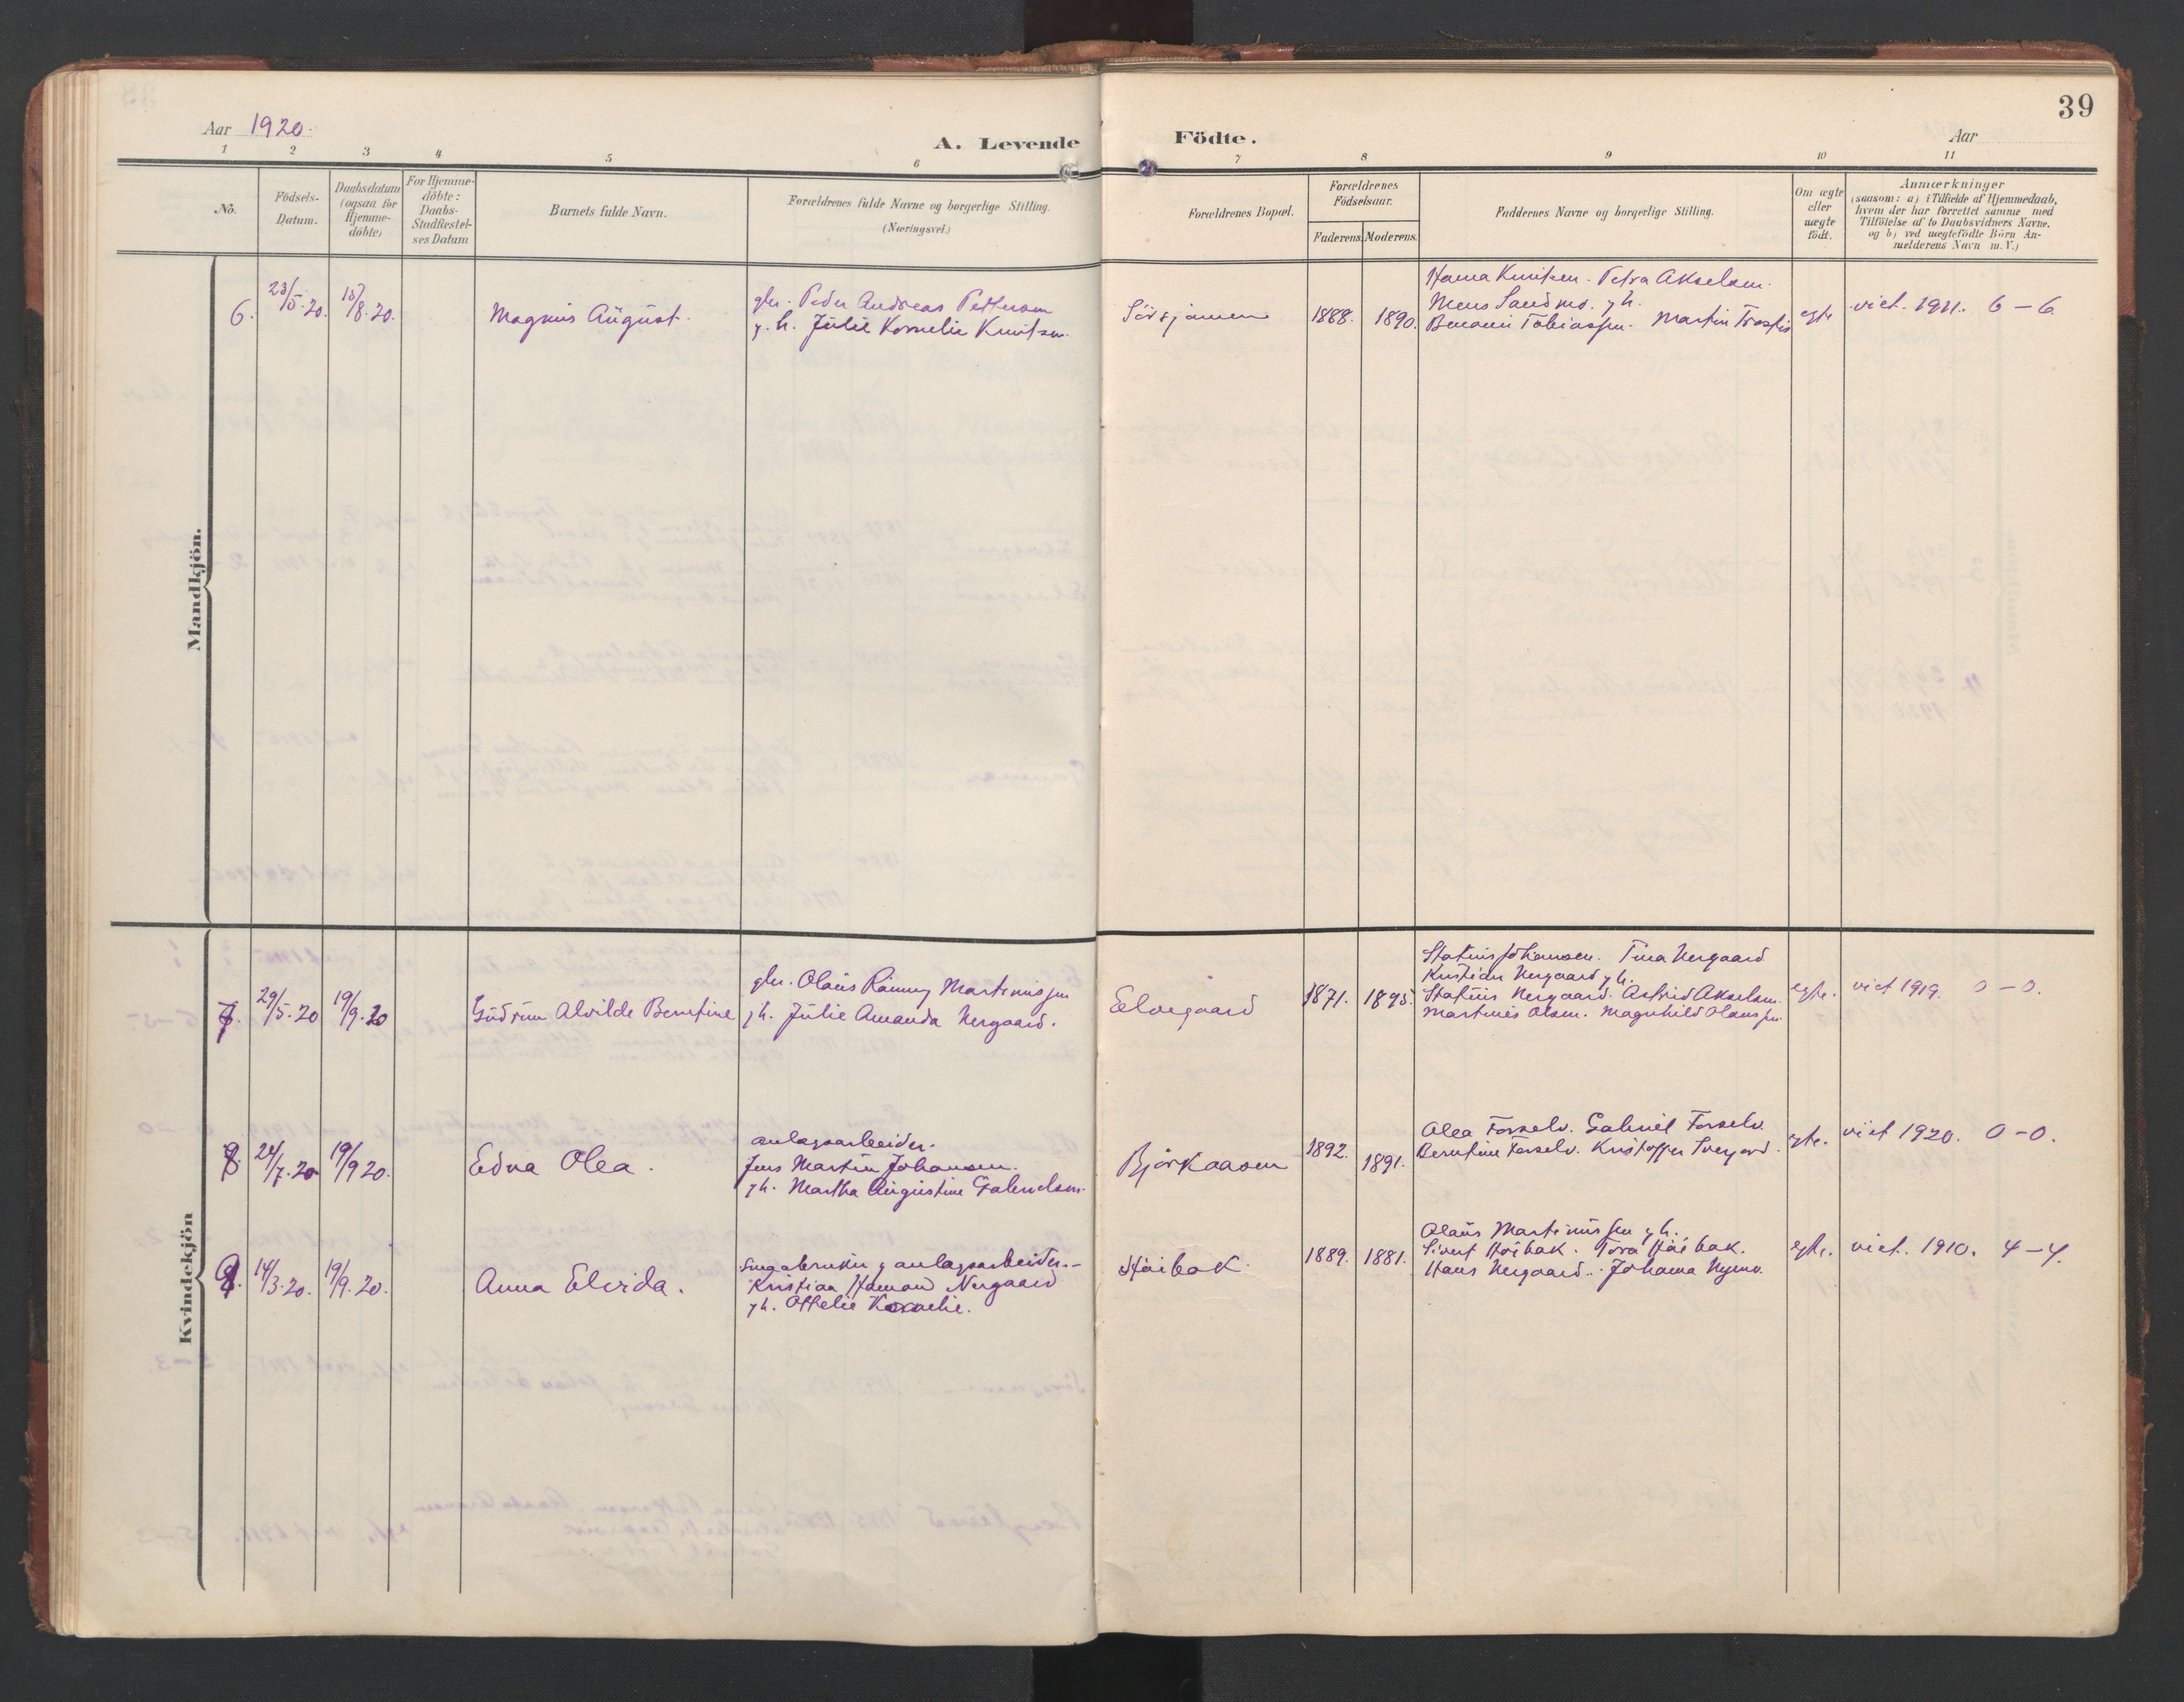 39
Aar 1920.
A. Levende Födte.
Aar
1 2 3 4 5 6 7 8 9 10 11
No.
Födsels-
Datum.
Daabsdatum
(ogsaa for
Hjemme-
döbte)
For Hjemme-
döbte:
Daabs-
Stadfæstel-
ses Datum
Barnets fulde Navn.
Forældrenes fulde Navne og borgerlige Stilling.
(Næringsvei.)
Forældrenes Bopæl.
Forældrenes
Födselsaar.
Faderens. Moderens.
Faddernes Navne og borgerlige Stilling.
Om ægte
eller
uægte
födt.
Anmærkninger
(saasom: a) i Tilfælde af Hjemmedaab,
hvem der har forrettet samme med
Tilföielse af to Daabsvidners Navne,
og b) ved uægtefödte Börn An-
melderens Navn m. V.)
Mandkjön.
6. 23/5.20. 15/8.20.
Magnus August.
gbr. Peder Andreas Pettersen
g. h. Julie Kornelie Knutsen.
1888. 1890.
Hanna Knutsen. Petra Akselsen.
Mens Sandmo. g h.
Benonie Tobiassen. Martin
egte
viet. 1911. 6-6
Kvindekjön
7. 29/5.20 19/9.20
Gudrun Alvilde Berntine
gbr. Olaus Martinussen
g h. Julie Amanda Nergaard.
Elvegaard
1871. 1895.
Johansen. Tina Nergaard
Kristian Nergaard g h.
Nergaard. Astrid Akselsen.
Martinus Olsen. Magnhild Olaussen.
egte.
viet 1919. 0-0.
8. 24/7.20 19/9 20.
Edna Olea.
anlægsarbeider.
Jens Martin Johansen.
g h. Martha Augustine Gabrielsen.
Björkaasen
1892. 1891.
Olea Forselv. Gabriel Forselv
Berntine Forselv. Kristoffer
egte.
viet 1920. 0-0.
9. 14/3.20. 19/9.20.
Anna Elvida.
g anlægsarbeider.-
Kristian Haman Nergaard
g h. Ottelie Kornelie.
Höibak.
1889. 1881.
Olaus Martinussen g h.
Sivert Höibak. Tora Höibak.
Hans Nergaard. Johanna Nymo.
egte.
viet. 1910. 4-4.